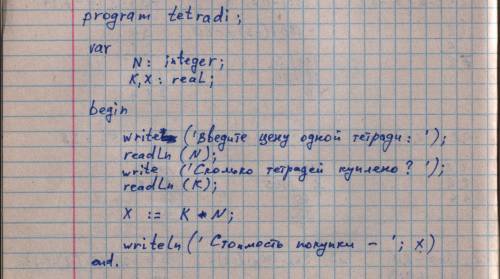 program tetradi;
var
N: integer;
K,X: real;
begin
write ('Введите цену одной тетради: ');
readln (N);
write ('Сколько тетрадей куплено? ');
readln (K);
X := K * N;
writeln ('Стоимость покупки - '; X)
end.